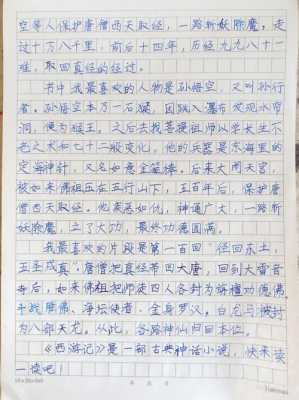 空等人保护唐僧西天取经，一路斩妖除魔，走
过十万八千里，前后十四年，历经九九八十一
难，取回真经的经过。
书中我最喜欢的人物是孙悟空，又叫孙行
者。孙悟空本为一石猴，因跳入瀑布发现水帘
洞，便为猴王。之后去找菩提祖师以学长生不
老之术和七十二般变化，他的兵器是东海里的
定海神针，又名如意金箍棒。后来大闹天宫，
被如来佛祖压在五行山下，五百年后，保护唐
僧西天取经。他疾恶如仇，神通广大，一路斩
妖除魔，立了大功，最终功德圆满。
我最喜欢的片段是第一百回“径回东土，
五圣成真”。唐僧把真经带回大唐，回到大雷音
寺后，如来佛祖把师徒四人各封为旃檀功德佛、
斗战胜佛、净坛使者、金身罗汉。白龙马被封
为八部天龙。从此，各路神仙归回本位。
《西游记》是一部古典神话小说，快来读
一读吧！